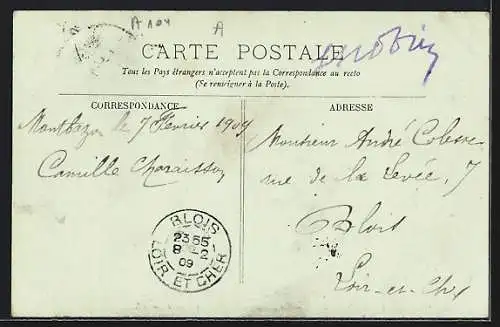 A 104
A
CARTE POSTALE
Tous les Pays étrangers n'acceptent pas la Correspondance au recto
(Se renseigner à la Poste).
CORRESPONDANCE
Montbazon le 7 Février 1909
Camille
ADRESSE
Monsieur André
rue de la Levée, 7
Blois
Loir-et-Cher
BLOIS
23 55
8 -2
09
LOIR ET CHER